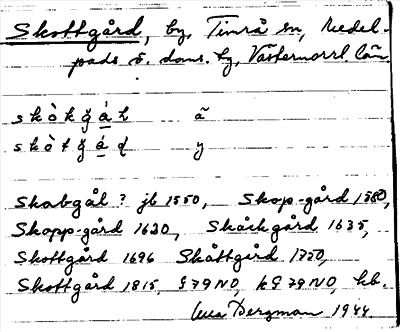 Skottgård, by, Timrå sn, Medel-
pads ö. doms. hg, Västernorrl. län
s k ò k ğ á ł ã
s k ò t ğ á ḍ y
Skabgål? jb 1550, Skop-gård 1580,
Skopp-gård 1630, Skåckgård 1635,
Skottgård 1696 Skåttgård 1750,
Skottgård 1815, G 79 NO, kG 79 NO, hb.
Bergman 1944.